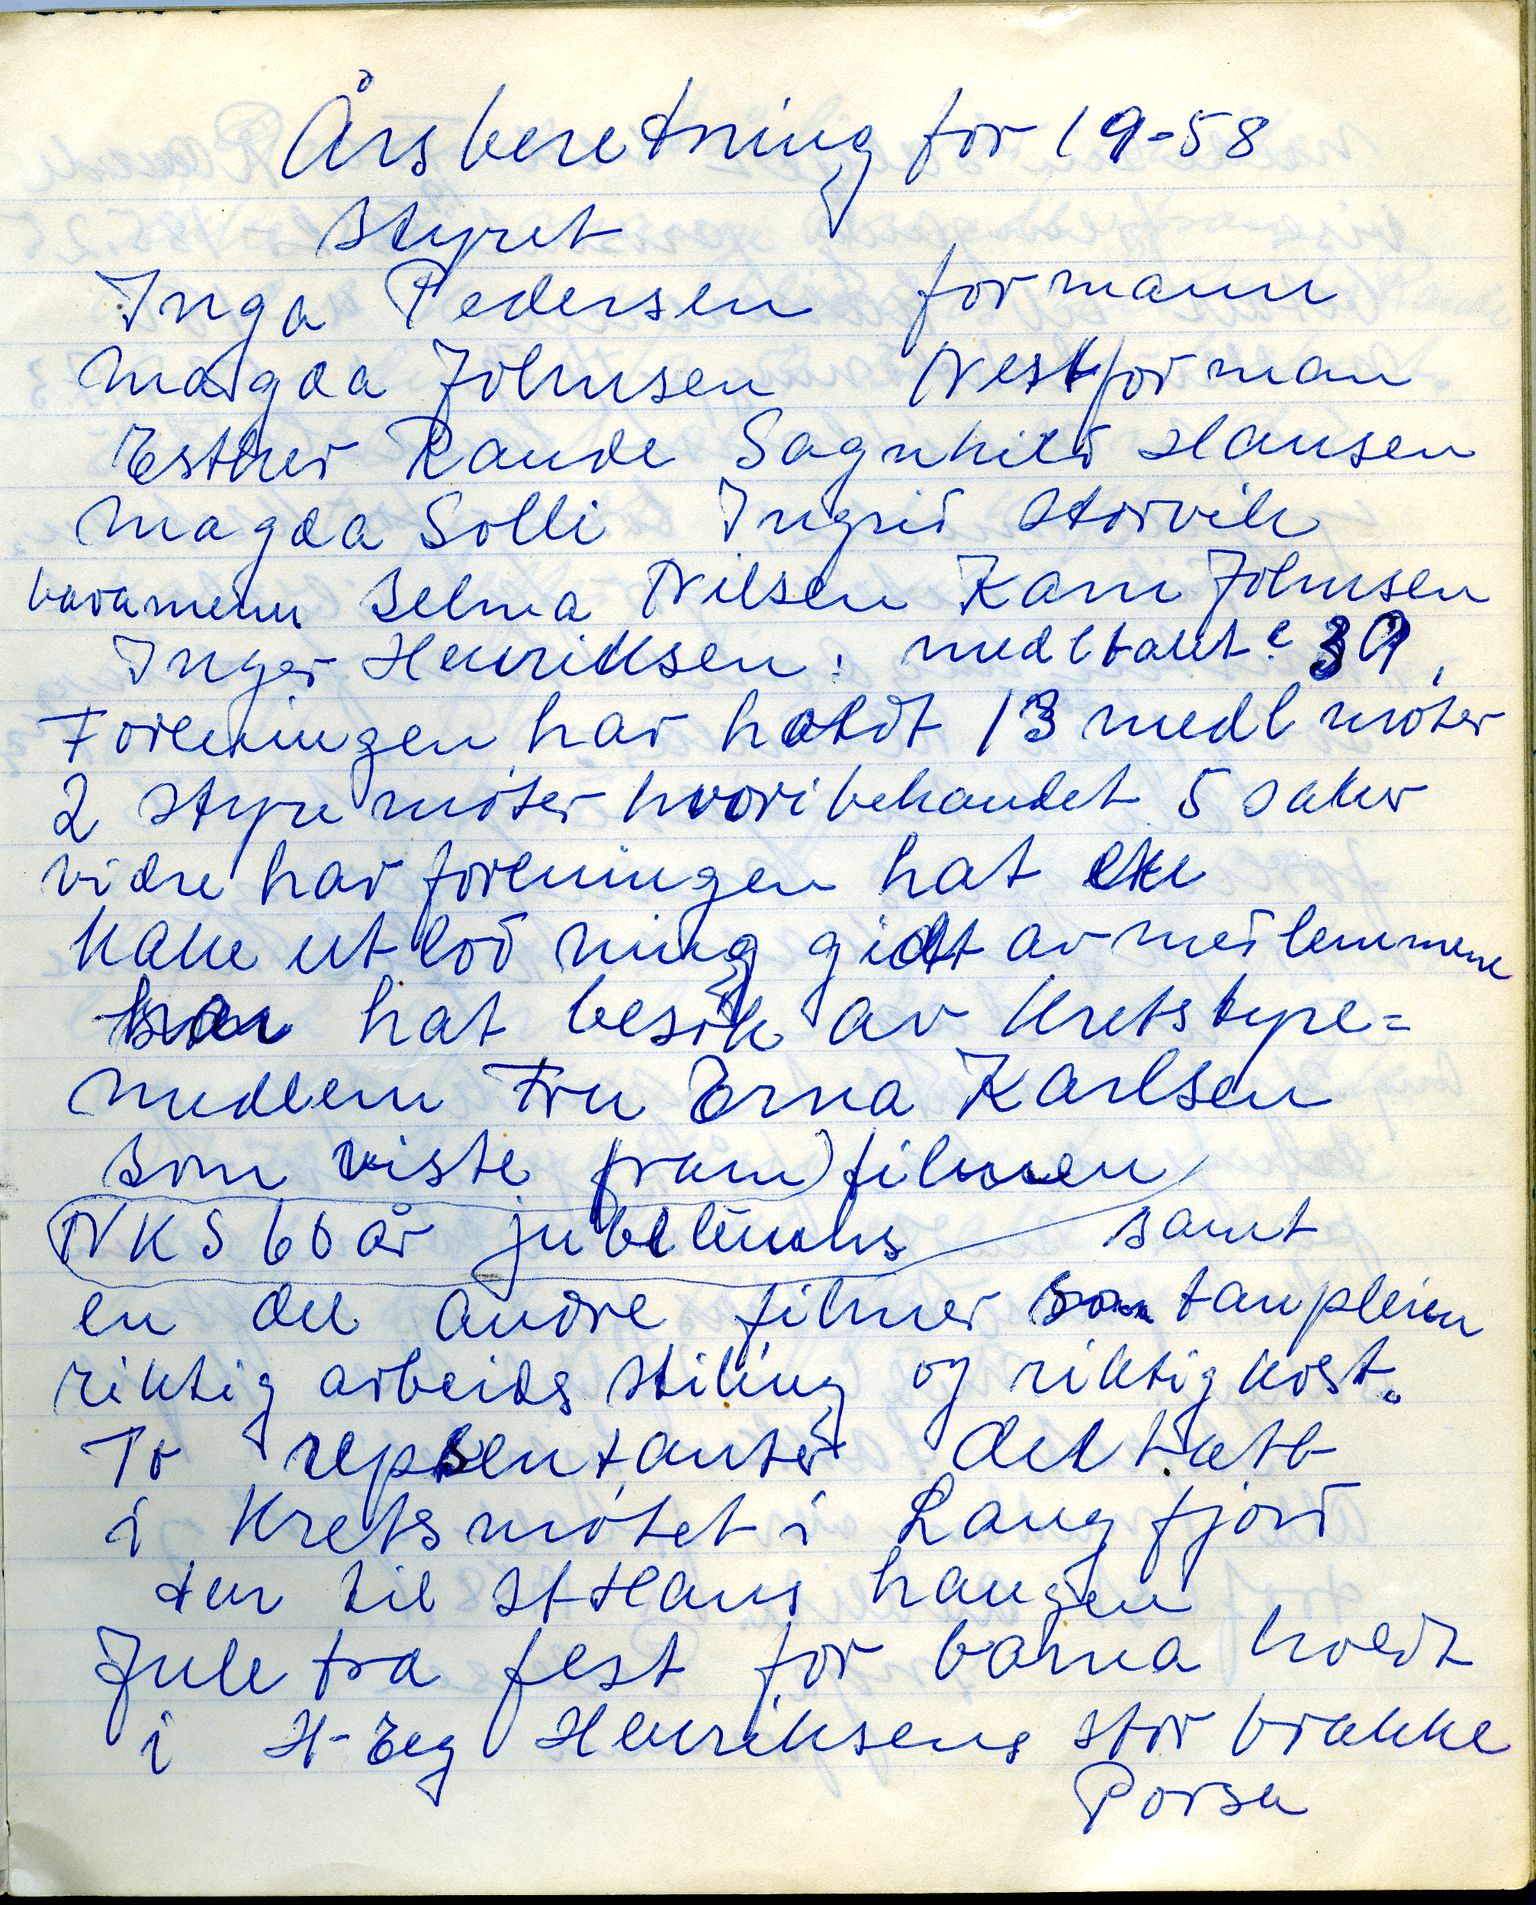 Årsberetning for 19-58
Styret
Inga Pedersen formann
Magda Johnsen Nestforman
Esther Rande Sagnhild Hansen
Magda Solli Ingrid Storvik
varamenn Selma Nilsen Karn Johnsen
Inger Henriksen. medltallet: 39.
Foreningen har holdt 13 medl møter
2 styremøter hvori behandlet 5 saker
vidre har foreningen hat
kake utlodning gidt av medlemmene
har hat besøk av kretstyre=
medlem Fru Erna Karlsen
som viste fram filmen
NKS 60 år jubileums samt
en del andre filmer som tanpleien
riktig arbeids stiling og riktig kost.
To repsentanter deltatt
i kretsmøtet i Langfjord
tur til St Hans haugen
Jule tra fest for barna holdt
i H-Eeg Henriksens stor brakke
Porsa